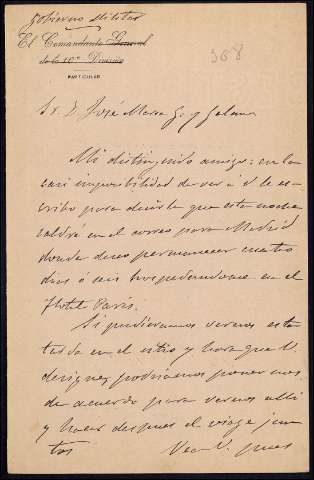 Gobierno Militar
El Comandante General
de la 10ª División
PARTICULAR
308
Sr. D. José Maria G. y Galan
Mi distinguido amigo: en la
casi imposibilidad de ver á V. le es-
cribo para decirle que esta noche
saldré en el correo para Madrid
donde deseo permanecer cuatro
dias ó seis hospedandome en el
Hotel Paris.
Si pudieramos vernos esta
tarde en el sitio y hora que V.
designe, podriamos poner nos
de acuerdo para vernos alli
y hacer despues el viaje jun-
tos
Vea V. pues